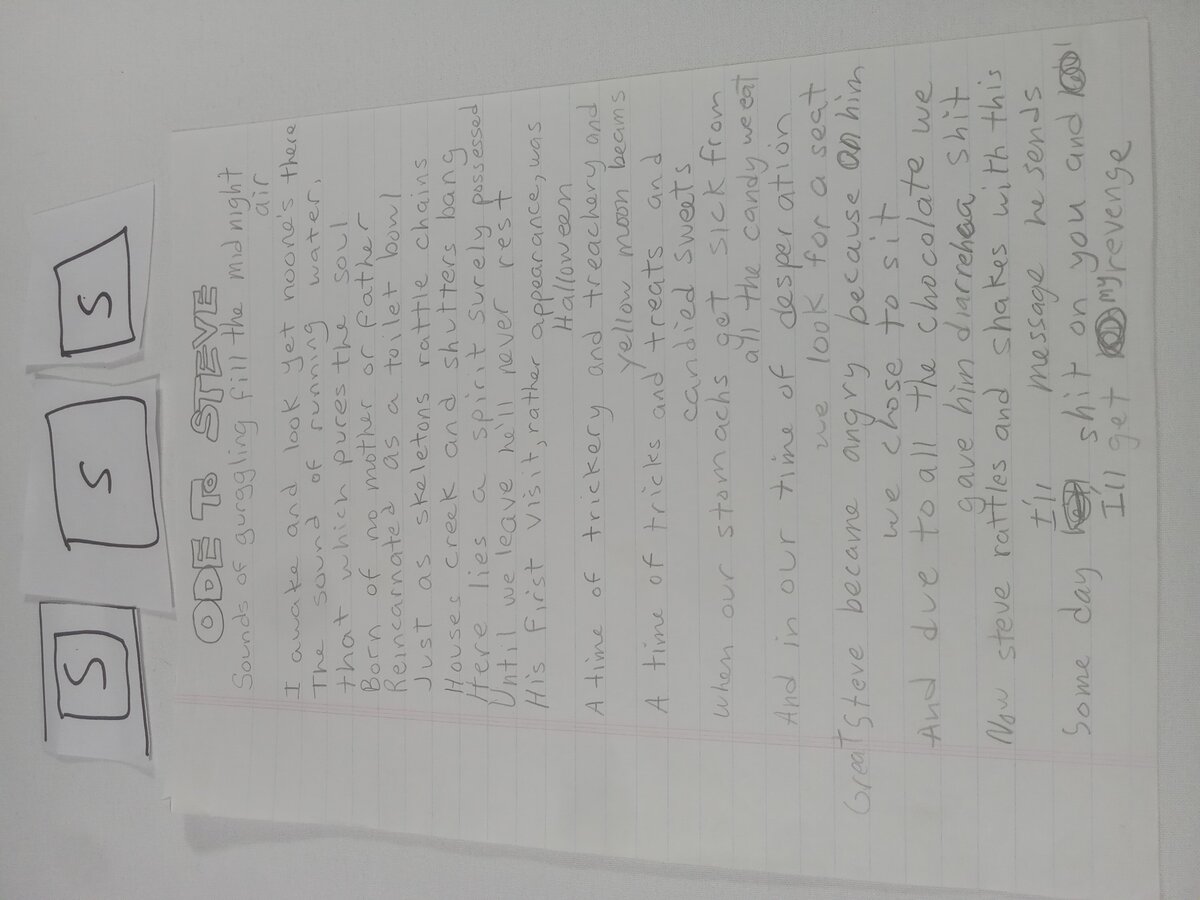 S
S
S
ODE TO STEVE
Sounds of gurggling fill the midnight
air
I awake and look yet noone's there
The sound of running water,
that which pures the soul
Born of no mother or father
Reincarnated as a toilet bowl
Just as skeletons rattle chains
Houses creek and shutters bang
Here lies a spirit surely possessed
Until we leave he'll never rest
His first visit, rather appearance, was
Halloween
A time of trickery and treachery and
Yellow moon beams
A time of tricks and treats and
candied sweets
When our stomachs get sick from
all the candy we eat
And in our time of desperation
we look for a seat
Great Steve became angry because on him
we chose to sit
And due to all the chocolate we
gave him diarrehea shit
Now steve rattles and shakes with this
message he sends
Some day I'll shit on you and
I'll get my revenge